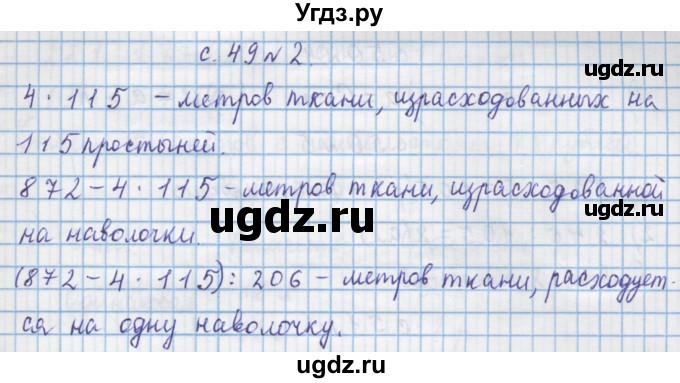 Угдз.ру
с. 49 № 2.
4 · 115 – метров ткани, израсходованных на
115 простыней.
872 – 4 · 115 – метров ткани, израсходованной
на наволочки.
(872 – 4 · 115) : 206 – метров ткани, расходует-
ся на одну наволочку.
ugdz.ru
ugdz.ru
ugdz.ru
ugdz.ru
ugdz.ru
ugdz.ru